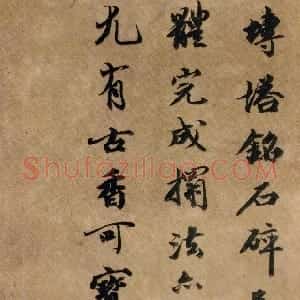 塼塔銘石碎
體完成搨法
尤有古香可寶
Shufaziliao.com